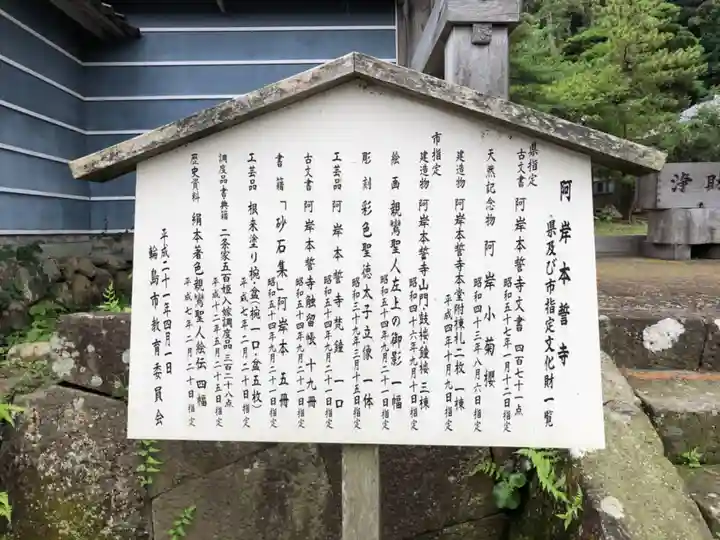 阿岸本誓寺
県及び市指定文化財一覧
県指定
古文書 阿岸本誓寺文書 四百七十一点
昭和五十七年一月十二日指定
天然記念物 阿岸小菊櫻
昭和四十三年八月六日指定
建造物 阿岸本誓寺本堂附棟札二枚 一棟
平成四年十月九日指定
市指定
建造物 阿岸本誓寺山門・鼓楼・鐘楼 三棟
昭和四十六年九月十日指定
絵画 親鸞聖人左上の御影 一幅
昭和五十四年九月二十日指定
彫刻 彩色聖徳太子立像 一体
昭和三十九年三月十五日指定
工芸品 阿岸本誓寺梵鐘 一口
昭和五十四年九月二十日指定
古文書 阿岸本誓寺触留帳 十九冊
昭和五十四年九月二十日指定
書籍 「砂石集」阿岸本 五冊
昭和五十四年九月二十日指定
工芸品 根来塗り椀・盆(椀一口・盆五枚)
平成七年二月二十日指定
調度品書典籍 二条家五百姫入嫁調度品 三百二十八点
平成十二年五月二十五日指定
歴史資料 絹本著色親鸞聖人絵伝 四幅
平成七年二月二十日指定
平成二十一年四月一日
輪島市教育委員会
浄財